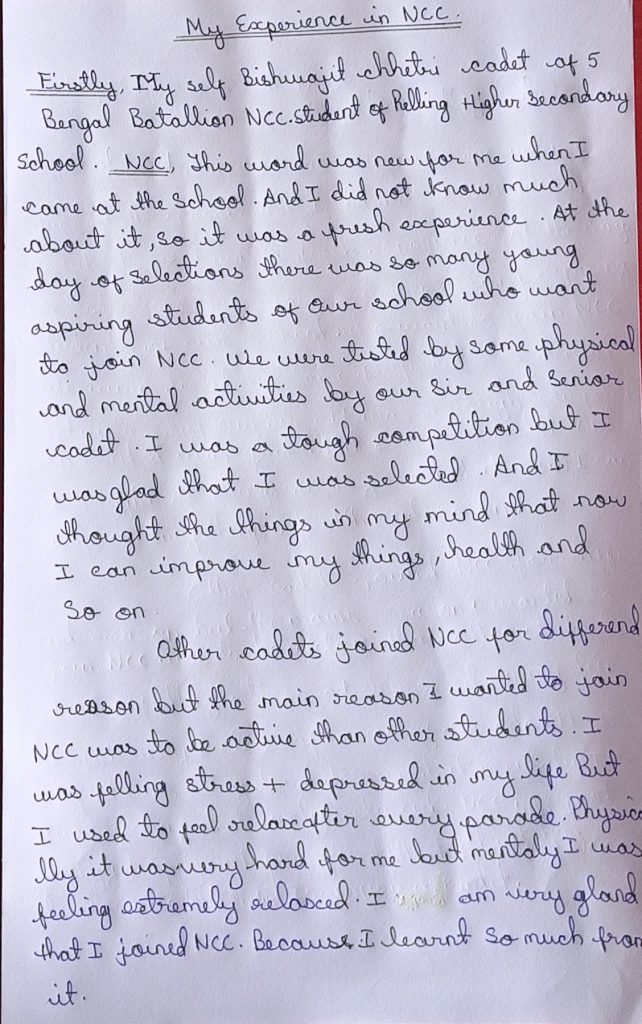 My Experience in NCC.
Firstly, My self Bishwajit chhetri cadet of 5
Bengal Batallion NCC. student of Relling Higher Secondary
School. NCC, This word was new for me when I
came at the School. And I did not know much
about it, so it was a fresh experience. At the
day of selections there was so many young
aspiring students of our school who want
to join NCC. We were tested by some physical
and mental activities by our Sir and Senior
cadet. I was a tough competition but I
was glad that I was selected. And I
thought the things in my mind that now
I can improve my things, health and
So on
Other cadets joined NCC for differend
reason but the main reason I wanted to join
NCC was to be active than other students. I
was felling stress + depressed in my life But
I used to feel relax after every parade. Physica
lly it was very hard for me but mentaly I was
feeling extremely relaxed. I am very gland
that I joined NCC. Because I learnt So much from
it.